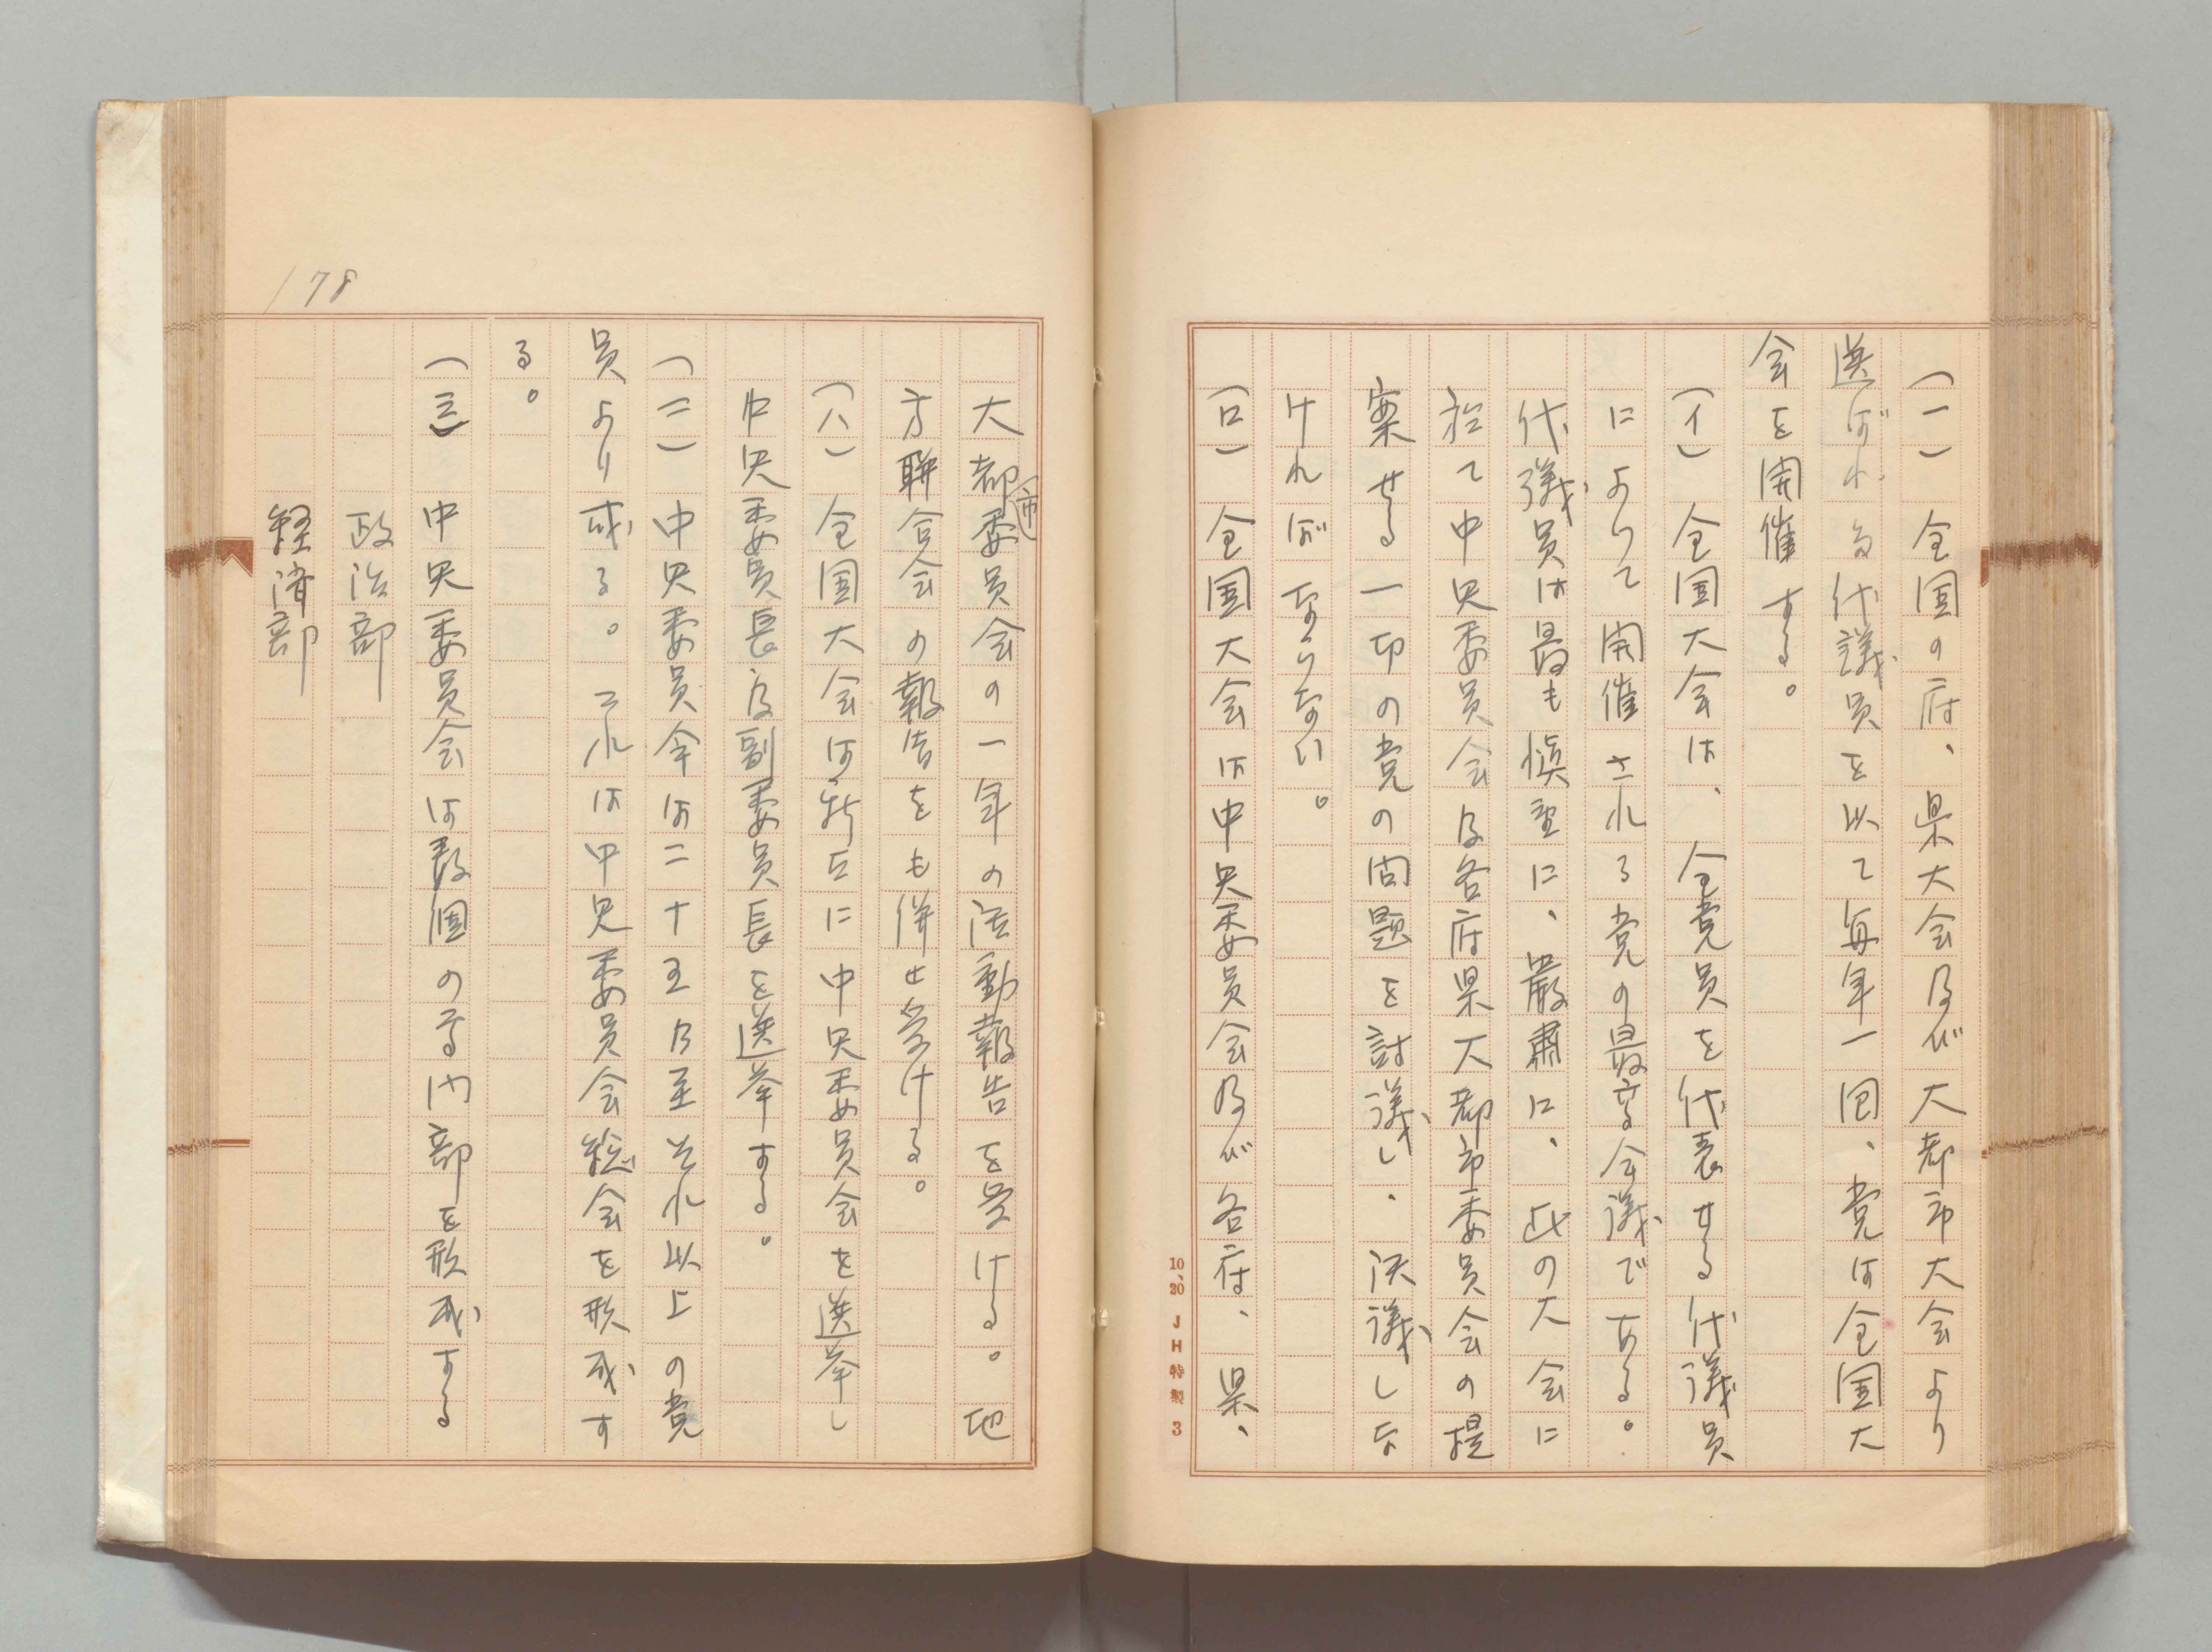 (一) 全国の府、県大会及び大都市大会より
選ばれる代議員を以て毎年一回、党は全国大
会を開催する。
(イ) 全国大会は、全党員を代表する代議員
によりて開催される党の最高会議である。
代議員は最も慎重に、厳粛に、此の大会に
於て中央委員会及各府県大都市委員会の提
案せる一切の党の問題を討議し、決議しな
ければならない。
(ロ) 全国大会は中央委員会及び各府、県、
10、20 JH特製 3
178
大都市委員会の一年の活動報告を受ける。地
方聯合会の報告をも併せ受ける。
(ハ) 全国大会は新たに中央委員会を選挙し
中央委員長及副委員長を選挙する。
(二) 中央委員会は二十五乃至それ以上の党
員より成る。これは中央委員会総会を形成す
る。
(三) 中央委員会は数個の専門部を形成する
政治部
経済部